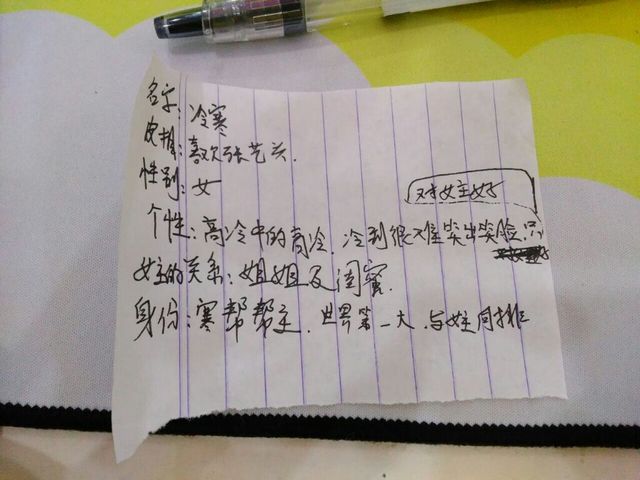 名字:冷寒
皮相:喜欢张艺兴.
性别:女
个性:高冷中的高冷.冷到很难笑出笑脸.只
对女主好
女主的关系:姐姐及闺蜜.
身份:寒帮帮主.世界第一大.与女主同排